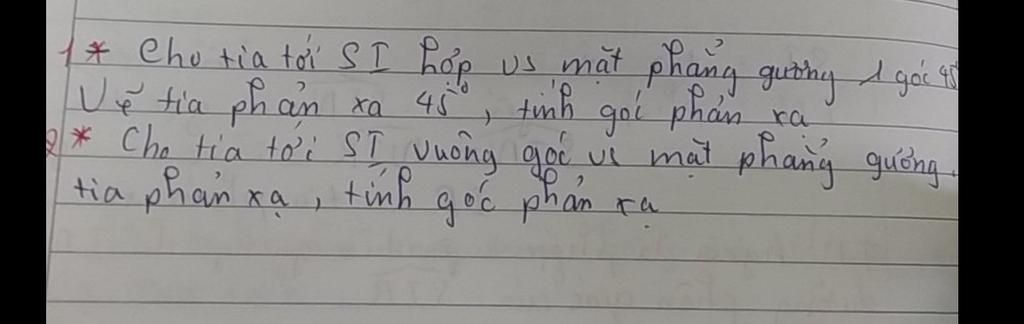 1 * Cho tia tới SI hợp vs mặt phẳng gương 1 góc 45°
Vẽ tia phản xạ 45°, tính góc phản xạ
2 * Cho tia tới SI vuông góc vs mặt phẳng gương.
tia phản xạ, tính góc phản xạ